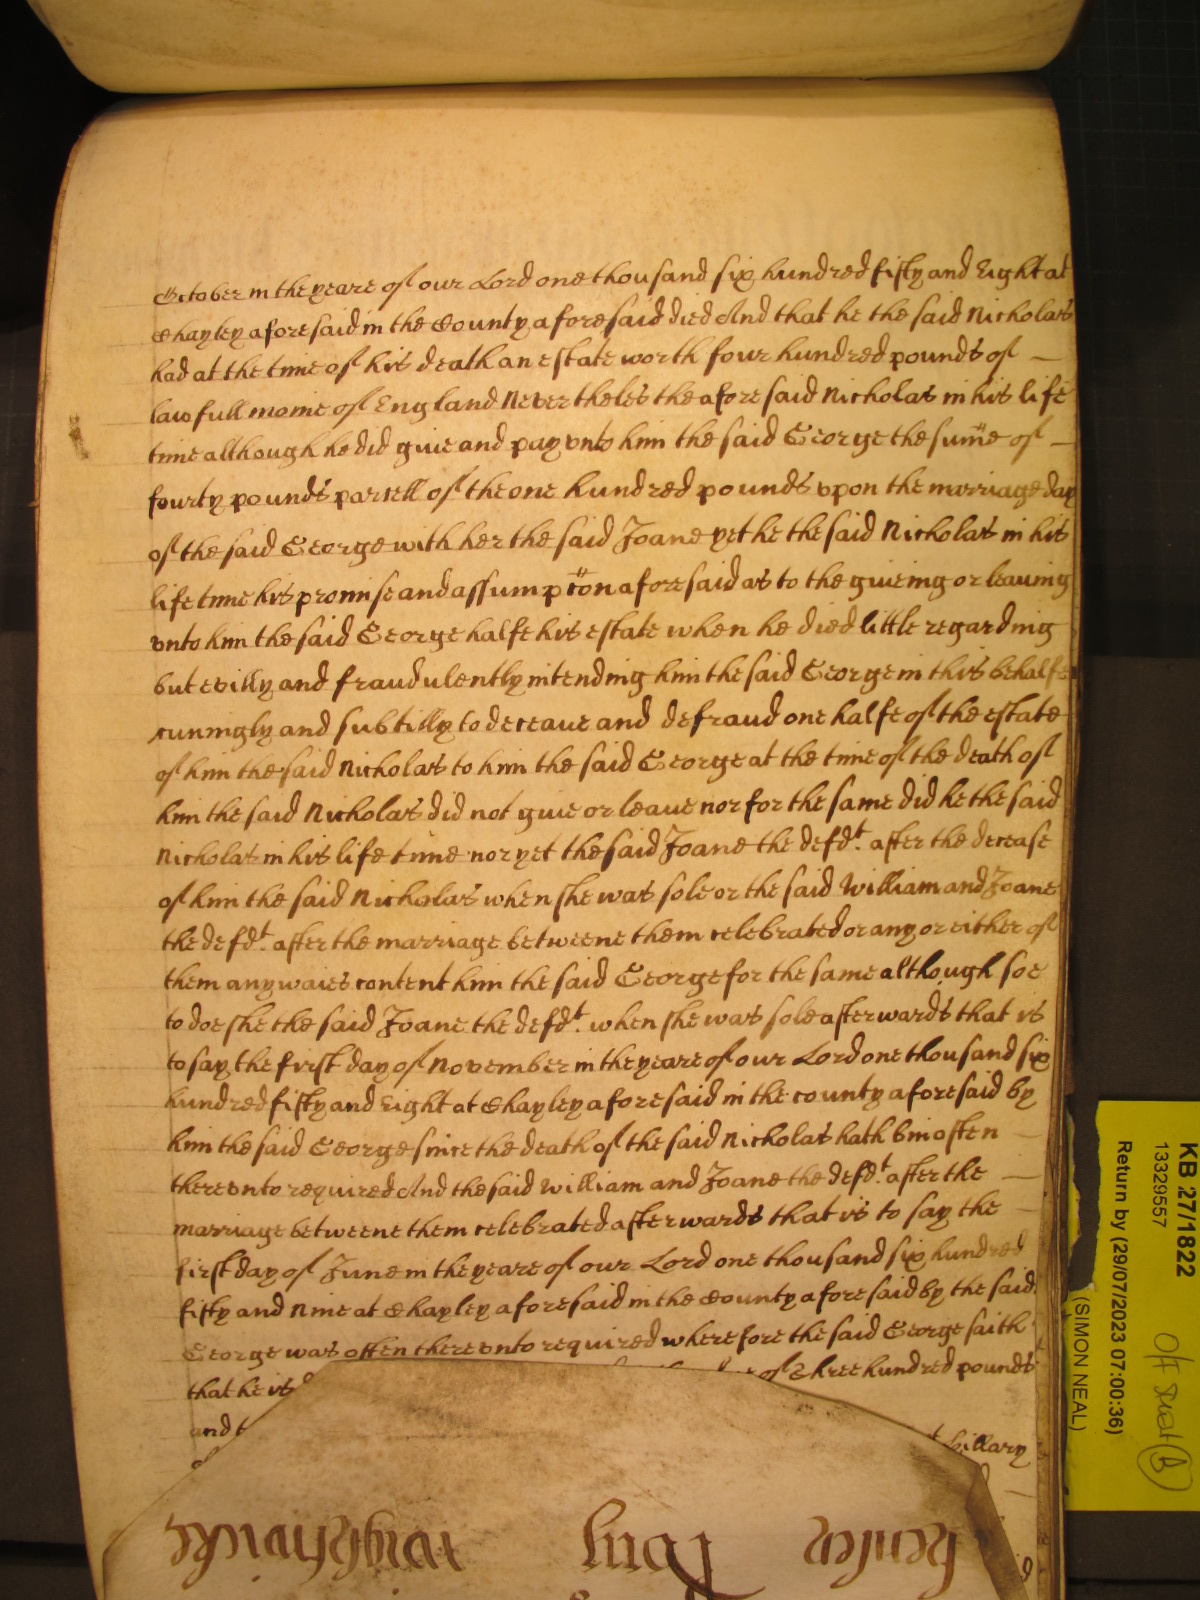 October in the yeare of our Lord one thousand six hundred fifty and Eight at
Chayley aforesaid in the County aforesaid died And that he the said Nicholas
had at the time of his death an estate worth four hundred pounds of
lawfull monie of England Nevertheles the aforesaid Nicholas in his life
time although he did giue and pay vnto him the said George the sum̃e of
fourty pounds parcell of the one hundred pounds vpon the marriage day
of the said George with her the said Joane yet he the said Nicholas in his
life time his promise and assumpc̃on aforesaid as to the giueing or leauing
vnto him the said George halfe his estate when he died little regarding
but evilly and fraudulently intending him the said George in this behalfe
cuningly and subtilly to deceaue and defraud one halfe of the estate
of him the said Nicholas to him the said George at the time of the death of
him the said Nicholas did not giue or leaue nor for the same did he the said
Nicholas in his life time nor yet the said Joane the defdt. after the decease
of him the said Nicholas when she was sole or the said William and Joane
the defdt. after the marriage betweene them celebrated or any or either of
them any waies content him the said George for the same although soe
to doe she the said Joane the defdt. when she was sole afterwards that is
to say the first day of November in the yeare of our Lord one thousand six
hundred fifty and Eight at Chayley aforesaid in the county aforesaid by
him the said George since the death of the said Nicholas hath bin often
therevnto required And the said William and Joane the defdt. after the
marriage betweene them celebrated afterwards that is to say the
first day of June in the yeare of our Lord one thousand six hundred
fifty and Nine at Chayley aforesaid in the County aforesaid by the said
George was often therevnto required wherefore the said George saith
that he is of Three hundred pounds
and hillary
KB 27/1822
13329557
Return by (29/07/2023 07:00:36)
(SIMON NEAL)